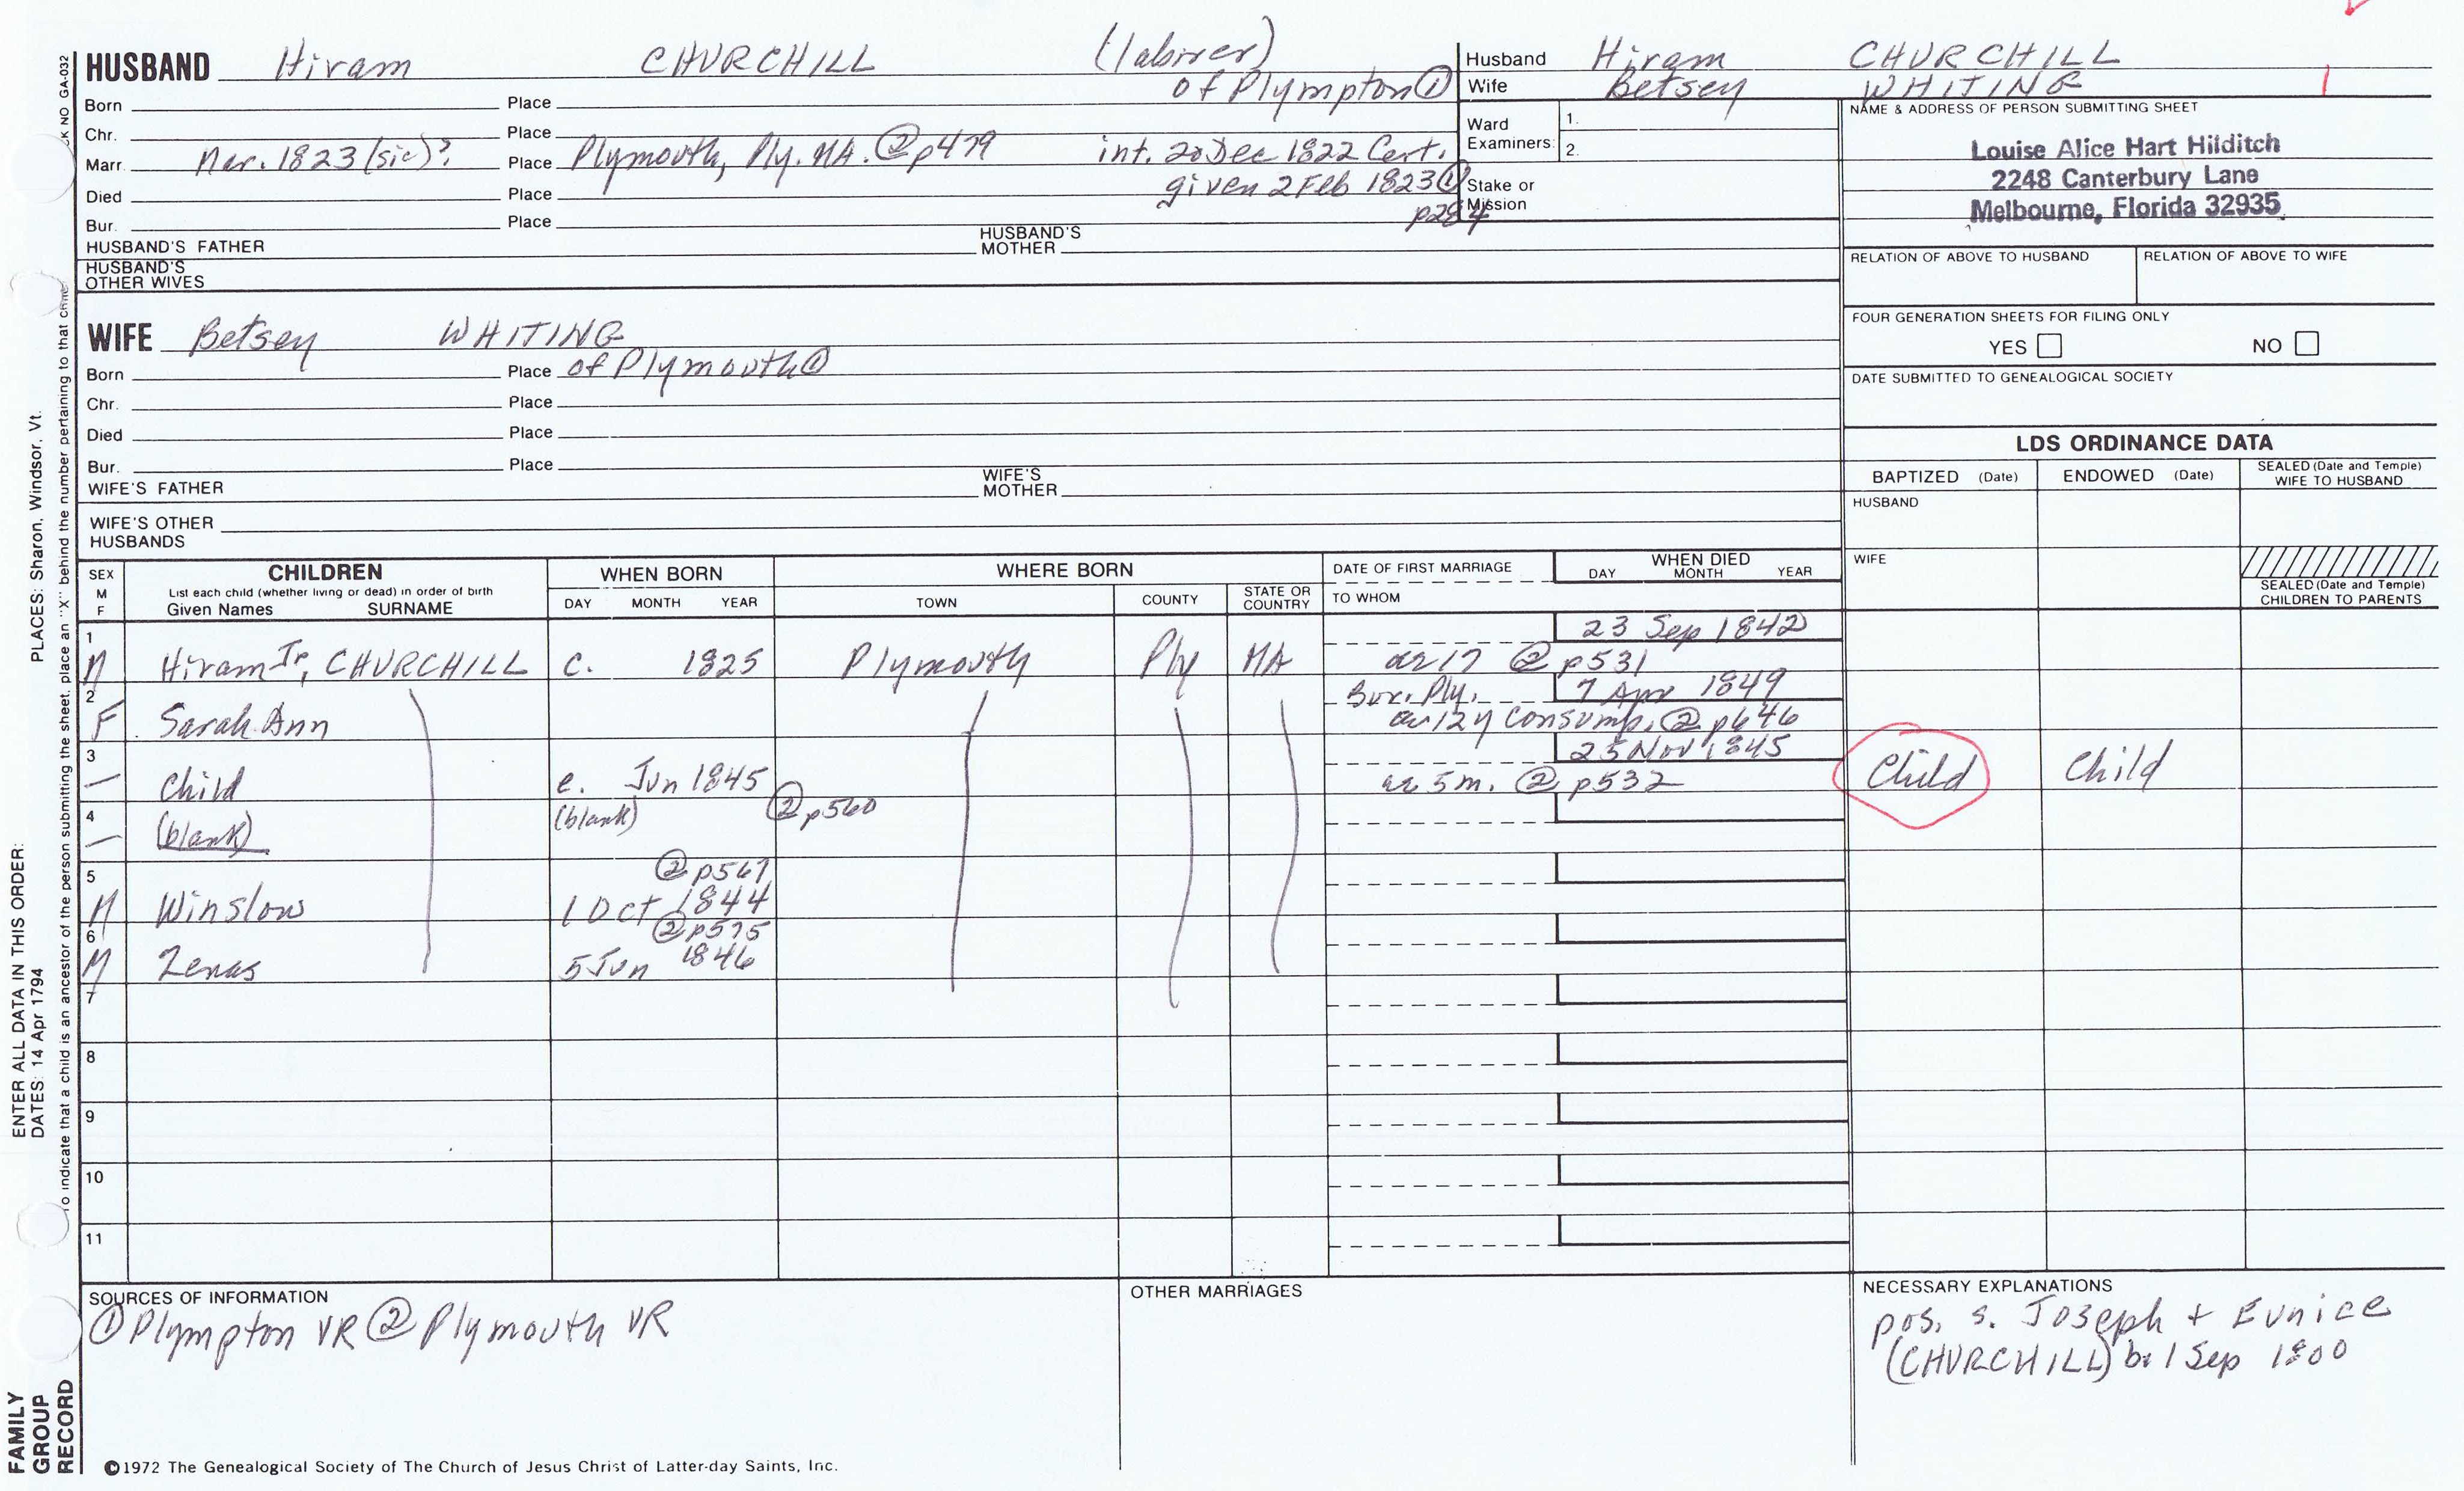 HUSBAND Hiram CHURCHILL (laborer)
of Plympton ①
Born Place
Chr. Place
Marr. Mar. 1823 (sic)? Place Plymouth, Ply. MA. ② p479 int. 20 Dec 1822 Cert.
given 2 Feb 1823 ①
p284
Died Place
Bur. Place
HUSBAND'S FATHER HUSBAND'S MOTHER
HUSBAND'S OTHER WIVES
Husband Hiram CHURCHILL
Wife Betsey WHITING 1
Ward Examiners: 1.
2.
Stake or Mission
NAME & ADDRESS OF PERSON SUBMITTING SHEET
Louise Alice Hart Hilditch
2248 Canterbury Lane
Melbourne, Florida 32935
RELATION OF ABOVE TO HUSBAND RELATION OF ABOVE TO WIFE
FOUR GENERATION SHEETS FOR FILING ONLY
YES NO
DATE SUBMITTED TO GENEALOGICAL SOCIETY
WIFE Betsey WHITING
Born Place of Plymouth ①
Chr. Place
Died Place
Bur. Place
WIFE'S FATHER WIFE'S MOTHER
WIFE'S OTHER HUSBANDS
LDS ORDINANCE DATA
BAPTIZED (Date) ENDOWED (Date) SEALED (Date and Temple) WIFE TO HUSBAND
HUSBAND
WIFE
SEALED (Date and Temple) CHILDREN TO PARENTS
SEX M F CHILDREN WHEN BORN WHERE BORN DATE OF FIRST MARRIAGE WHEN DIED
List each child (whether living or dead) in order of birth
Given Names SURNAME DAY MONTH YEAR TOWN COUNTY STATE OR COUNTRY TO WHOM DAY MONTH YEAR
1 23 Sep 1842
M Hiram Jr, CHURCHILL c. 1825 Plymouth Ply MA ae 17 ② p531
2 Bur. Ply. 7 Apr 1849
F Sarah Ann ae 12y consump. ② p646
3 25 Nov 1845
— Child c. Jun 1845 ae 5m. ② p532 Child Child
4 (blank) ② p560
— (blank)
5 ② p567
M Winslow 1 Oct 1844
6 ② p575
M Zenas 5 Jun 1846
7
8
9
10
11
SOURCES OF INFORMATION
① Plympton VR ② Plymouth VR
OTHER MARRIAGES
NECESSARY EXPLANATIONS
pos. s. Joseph + Eunice
(CHURCHILL) b. 1 Sep 1800
©1972 The Genealogical Society of The Church of Jesus Christ of Latter-day Saints, Inc.
FAMILY
GROUP
RECORD
ENTER ALL DATA IN THIS ORDER:
DATES: 14 Apr 1794 PLACES: Sharon, Windsor, Vt.
To indicate that a child is an ancestor of the person submitting the sheet, place an "X" behind the number pertaining to that child
NO GA-032